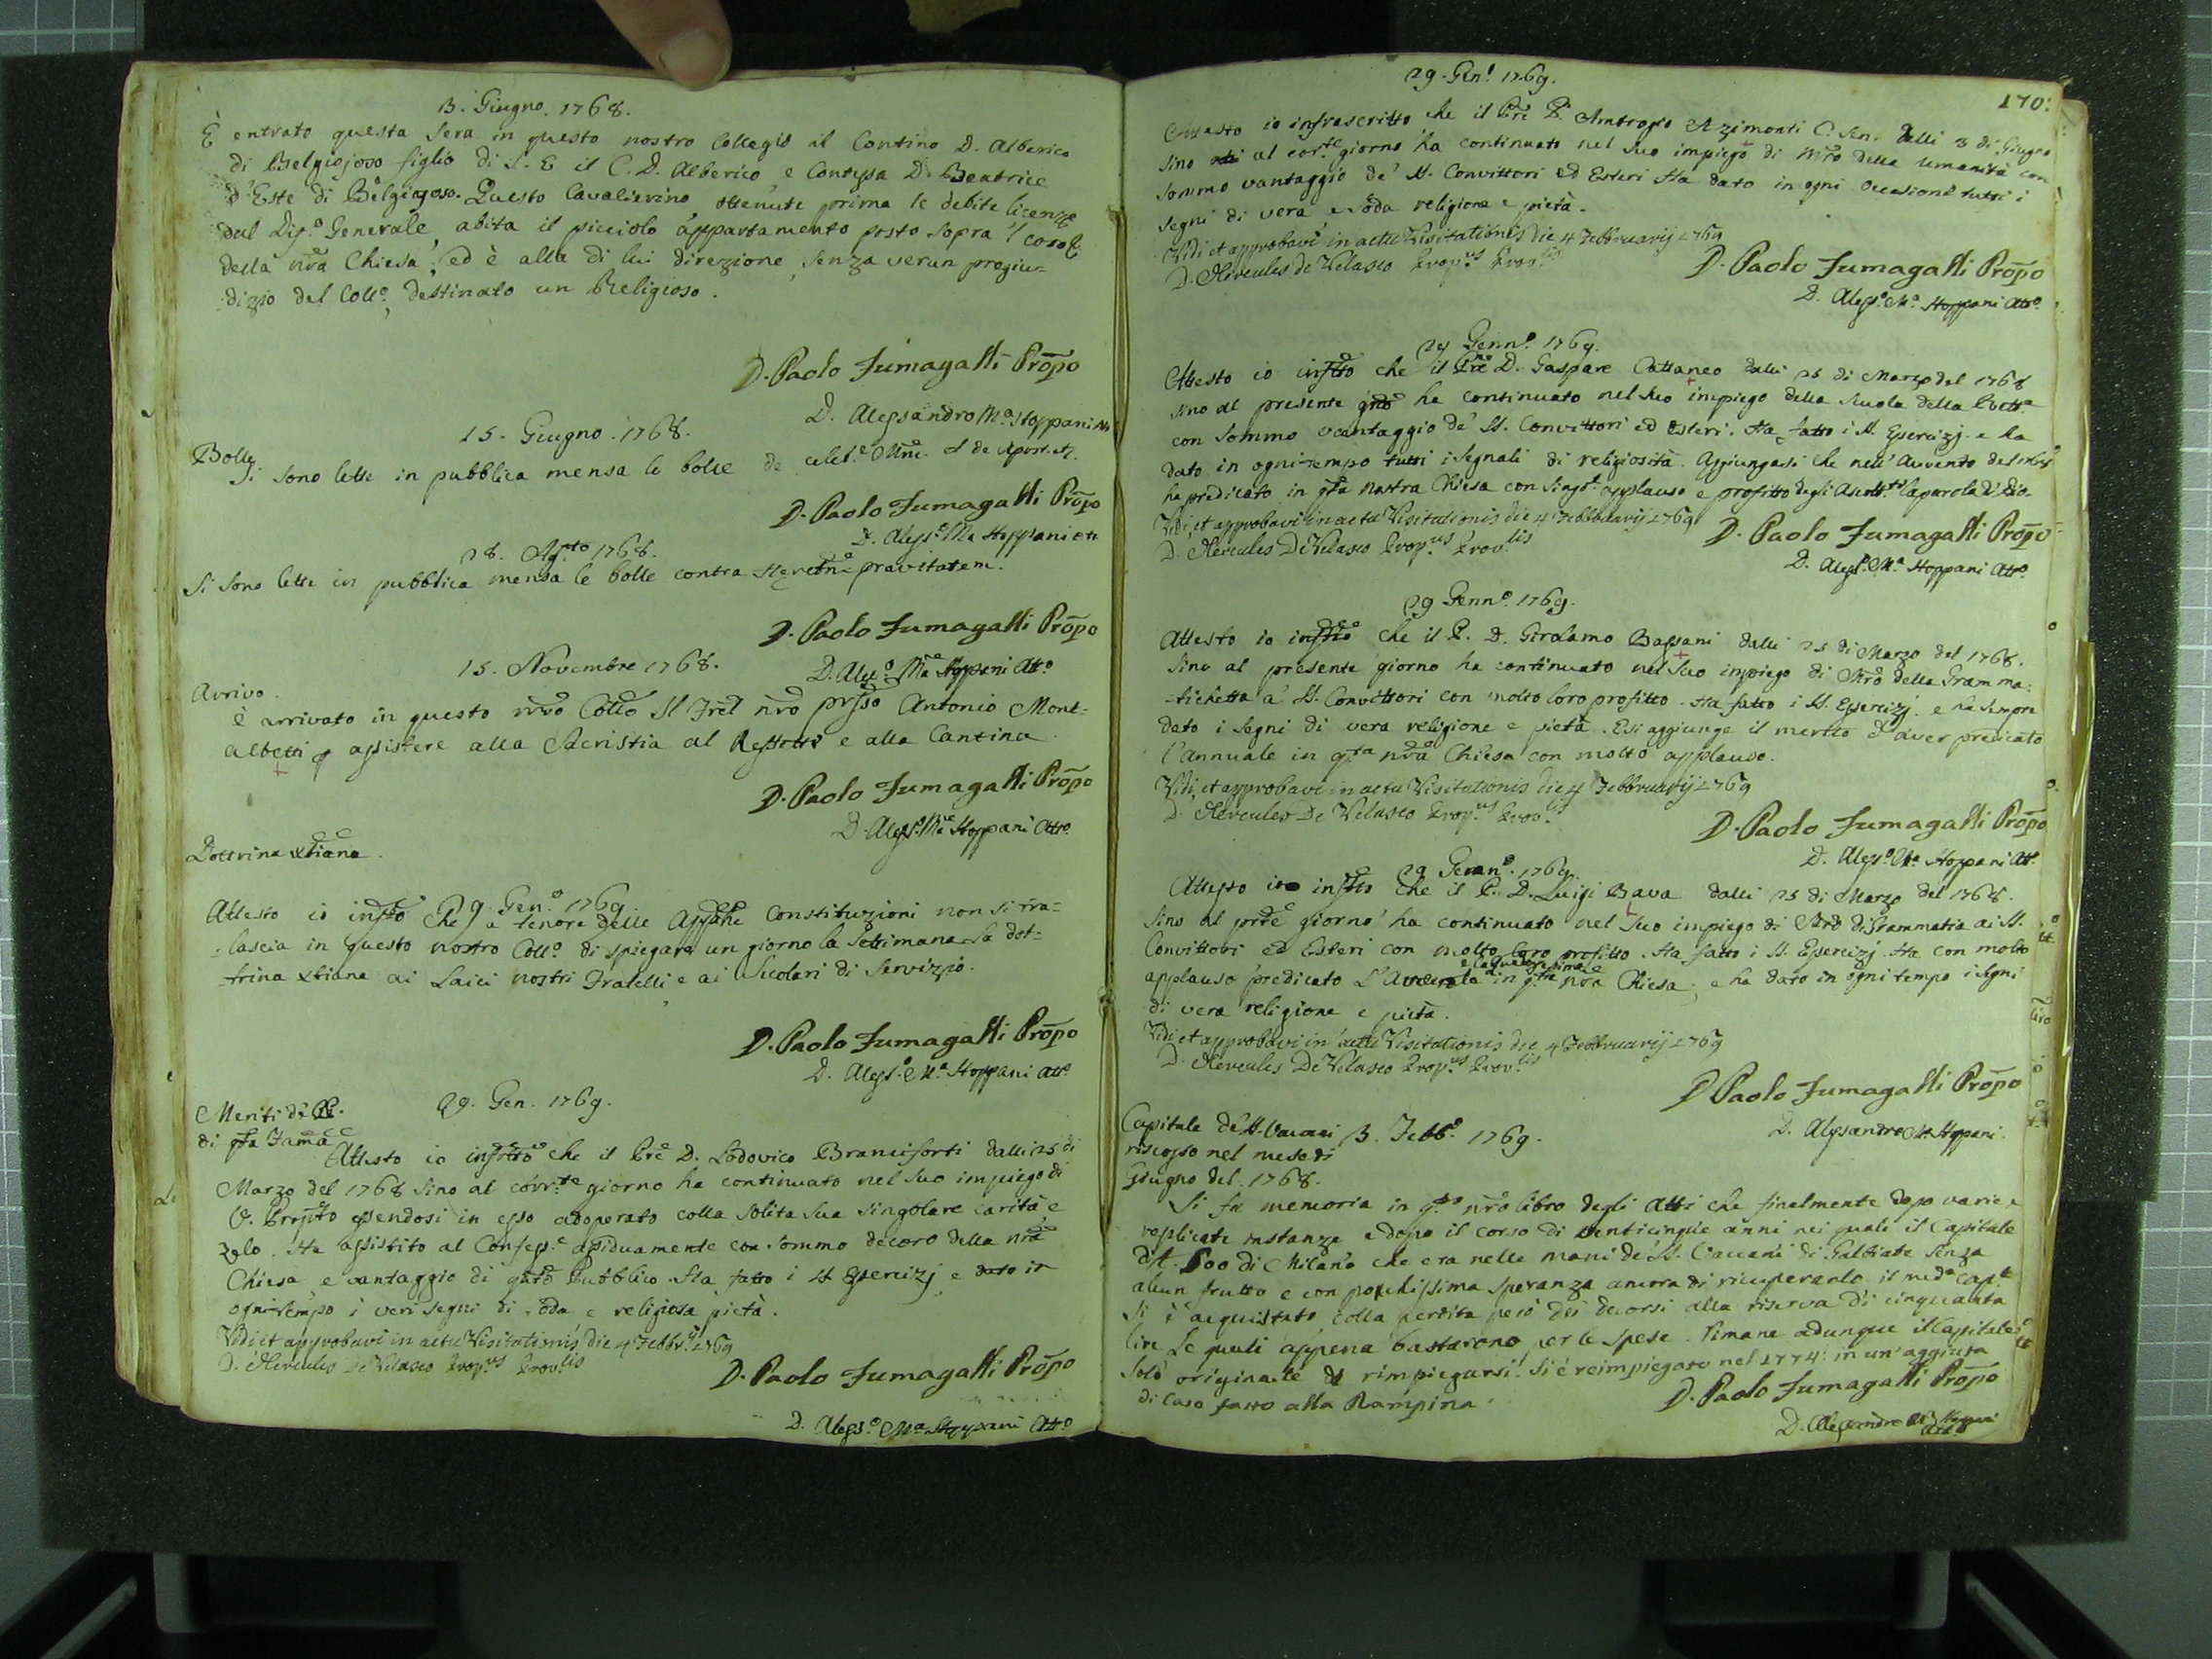 13. Giugno. 1768.
È entrato questa sera in questo nostro Collegio il Contino D. Alberico
di Belgiojoso figlio di S. E il C. D. Alberico, e Contessa D. Beatrice
D'Este di Belgiojoso. Questo Cavalierino ottenute prima le debite licenze
dal Dif.º Generale, abita il picciolo appartamento posto sopra 'l coro
della nrã Chiesa; ed è alla di lui direzione, senza verun pregiu-
dizio del Coll.º, destinato un Religioso.
D. Paolo Fumagalli Prõpo
D. Alessandro M.ª Stoppani
15. Giugno. 1768.
Bolle.
Si sono lette in pubblica mensa le bolle de celeb.e Miss. et de Apost.
D. Paolo Fumagalli Prõpo
D. Aless.º Mª Stoppani Att
28. Ag.sto 1768.
Si sono lette in pubblica mensa le bolle contra pravitatem.
D. Paolo Fumagalli Prõpo
D. Aless.º Mª Stoppani Att.º
15. Novembre 1768.
Arrivo.
È arrivato in questo nrõ Collo Il Frel nrõ Antonio Mont-
albetti p assistere alla Sacristia al e alla Cantina.
D. Paolo Fumagalli Prõpo
D. Aless.º Mª Stoppani Att.º
Dottrina Xtiana.
29. Gen.º 1769.
Attesto io infrtto Che a tenore delle Constituzioni non si tra-
lascia in questo nostro Coll.º di spiegare un giorno la settimana la dot-
trina Xtiana ai Laici nostri Fratelli e ai Secolari di Servizio.
D. Paolo Fumagalli Prõpo
D. Aless.º Mª Stoppani Att.º
Meriti de' PP.
di qta Fama
29. Gen. 1769.
Attesto io infrtto che il Pre D. Lodovico Branciforti dalli 25 di
Marzo del 1768 sino al corr.te giorno ha continuato nel suo impiego di
V. Prepto essendosi in esso adoperato colla solita sua singolare carità, e
zelo. Ha assistito al Confess.e assiduamente con sommo decoro della nrã
Chiesa, e vantaggio di qsto Pubblico. Ha fatto i SS Esercizj, e dato in
ogni tempo i veri segni di soda e religiosa pietà.
Vidi et approbavi in actu Visitationis die 4 Febbr.ij 1769
D. Hercules De Velasco Prop.us Prov.lis
D. Paolo Fumagalli Prõpo
D. Aless.º Mª Stoppani Att.º
170.
29. Gen.º 1769.
Attesto io infrascritto che il Pre D. Ambrogio Azimonti C. Sen. dalli 3 di Giugno
sino al corr.te giorno ha continuato nel suo impiego di Mrõ della Umanità con
sommo vantaggio de' SS. Convittori ed Esteri. Ha dato in ogni occasione tutti i
segni di vera, e soda religione e pietà.
Vidi et approbavi in actu Visitationis die 4 Febbruarij 1769
D. Hercules de Velasco Prop.us Prov.lis
D. Paolo Fumagalli Prõpo
D. Aless.º Mª Stoppani Att.º
29 Genn.º 1769.
Attesto io infrtto che il Pre D. Gaspare Cattaneo dalli 25 di Marzo del 1768
sino al presente gno ha continuato nel suo impiego della Scuola della Rett.ca
con sommo vantaggio de' SS. Convittori ed Esteri. Ha fatto i SS. Esercizj. e ha
dato in ogni tempo tutti i segnali di religiosità. Aggiungasi che nell'Avvento del 1768
ha predicato in qta nostra Chiesa con singol. applauso e profitto degli Ascolt.ti la parola di Dio.
Vidi, et approbavi in actu Visitationis die 4 Febbruarij 1769
D. Hercules De Velasco Prop.us Prov.lis
D. Paolo Fumagalli Prõpo
D. Aless.º Mª Stoppani Att.º
29 Genn.º 1769.
Attesto io infrtto che il P. D. Girolamo Bassani dalli 25 di Marzo del 1768.
sino al presente giorno ha continuato nel suo impiego di Mrõ della Gramma-
tichetta a' SS. Convittori con molto loro profitto. Ha fatto i SS. Esercizj. e ha sempre
dato i segni di vera religione e pietà. E si aggiunge il merito d'aver predicato
l'annuale in q.ta nrã Chiesa con molto applauso.
Vidi, et approbavi in actu Visitationis die 4 Febbruarij 1769
D. Hercules De Velasco Prop.us Prov.lis
D. Paolo Fumagalli Prõpo
D. Aless.º Mª Stoppani Att.º
29 Genn.º 1769.
Attesto io infrtto che il P. D. Luigi Bava dalli 25 di Marzo del 1768.
sino al prnte giorno ha continuato nel suo impiego di Mrõ di Grammatica ai SS.
Convittori ed Esteri con molto loro profitto. Ha fatto i SS. Esercizj. Ha con molto
e la quaresima
applauso predicato L'Annuale in q.ta nrã Chiesa, e ha dato in ogni tempo i segni
di vera religione e pietà.
Vidi et approbavi in actu Visitationis die 4 Febbruarij 1769
D. Hercules De Velasco Prop.us Prov.lis
D Paolo Fumagalli Prõpo
D. Alessandro Mª Stoppani.
Capitale de' SS. Vaccani
riscosso nel mese di
Giugno del 1768.
3. Febb.º 1769.
Si fa memoria in q.to nrõ libro degli Atti che finalmente dopo varie e
replicate instanze e dopo il corso di venticinque anni nei quali il Capitale
di 500 di Milano che era nelle mani de' SS. Vaccani di Galbiate senza
alcun frutto e con pochissima speranza ancora di ricuperarlo. il med.º cap.le
si è acquistato colla perdita però dei decorsi alla riserva di cinquanta
lire Le quali appena bastarono per le spese. Rimane adunque il Capitale
solo originale da rimpiegarsi. Si è reimpiegato nel 1774. in un'aggiunta
di Casa fatta alla Rampina.
D. Paolo Fumagalli Prõpo
D. Alessandro Mª Stoppani
Att.º